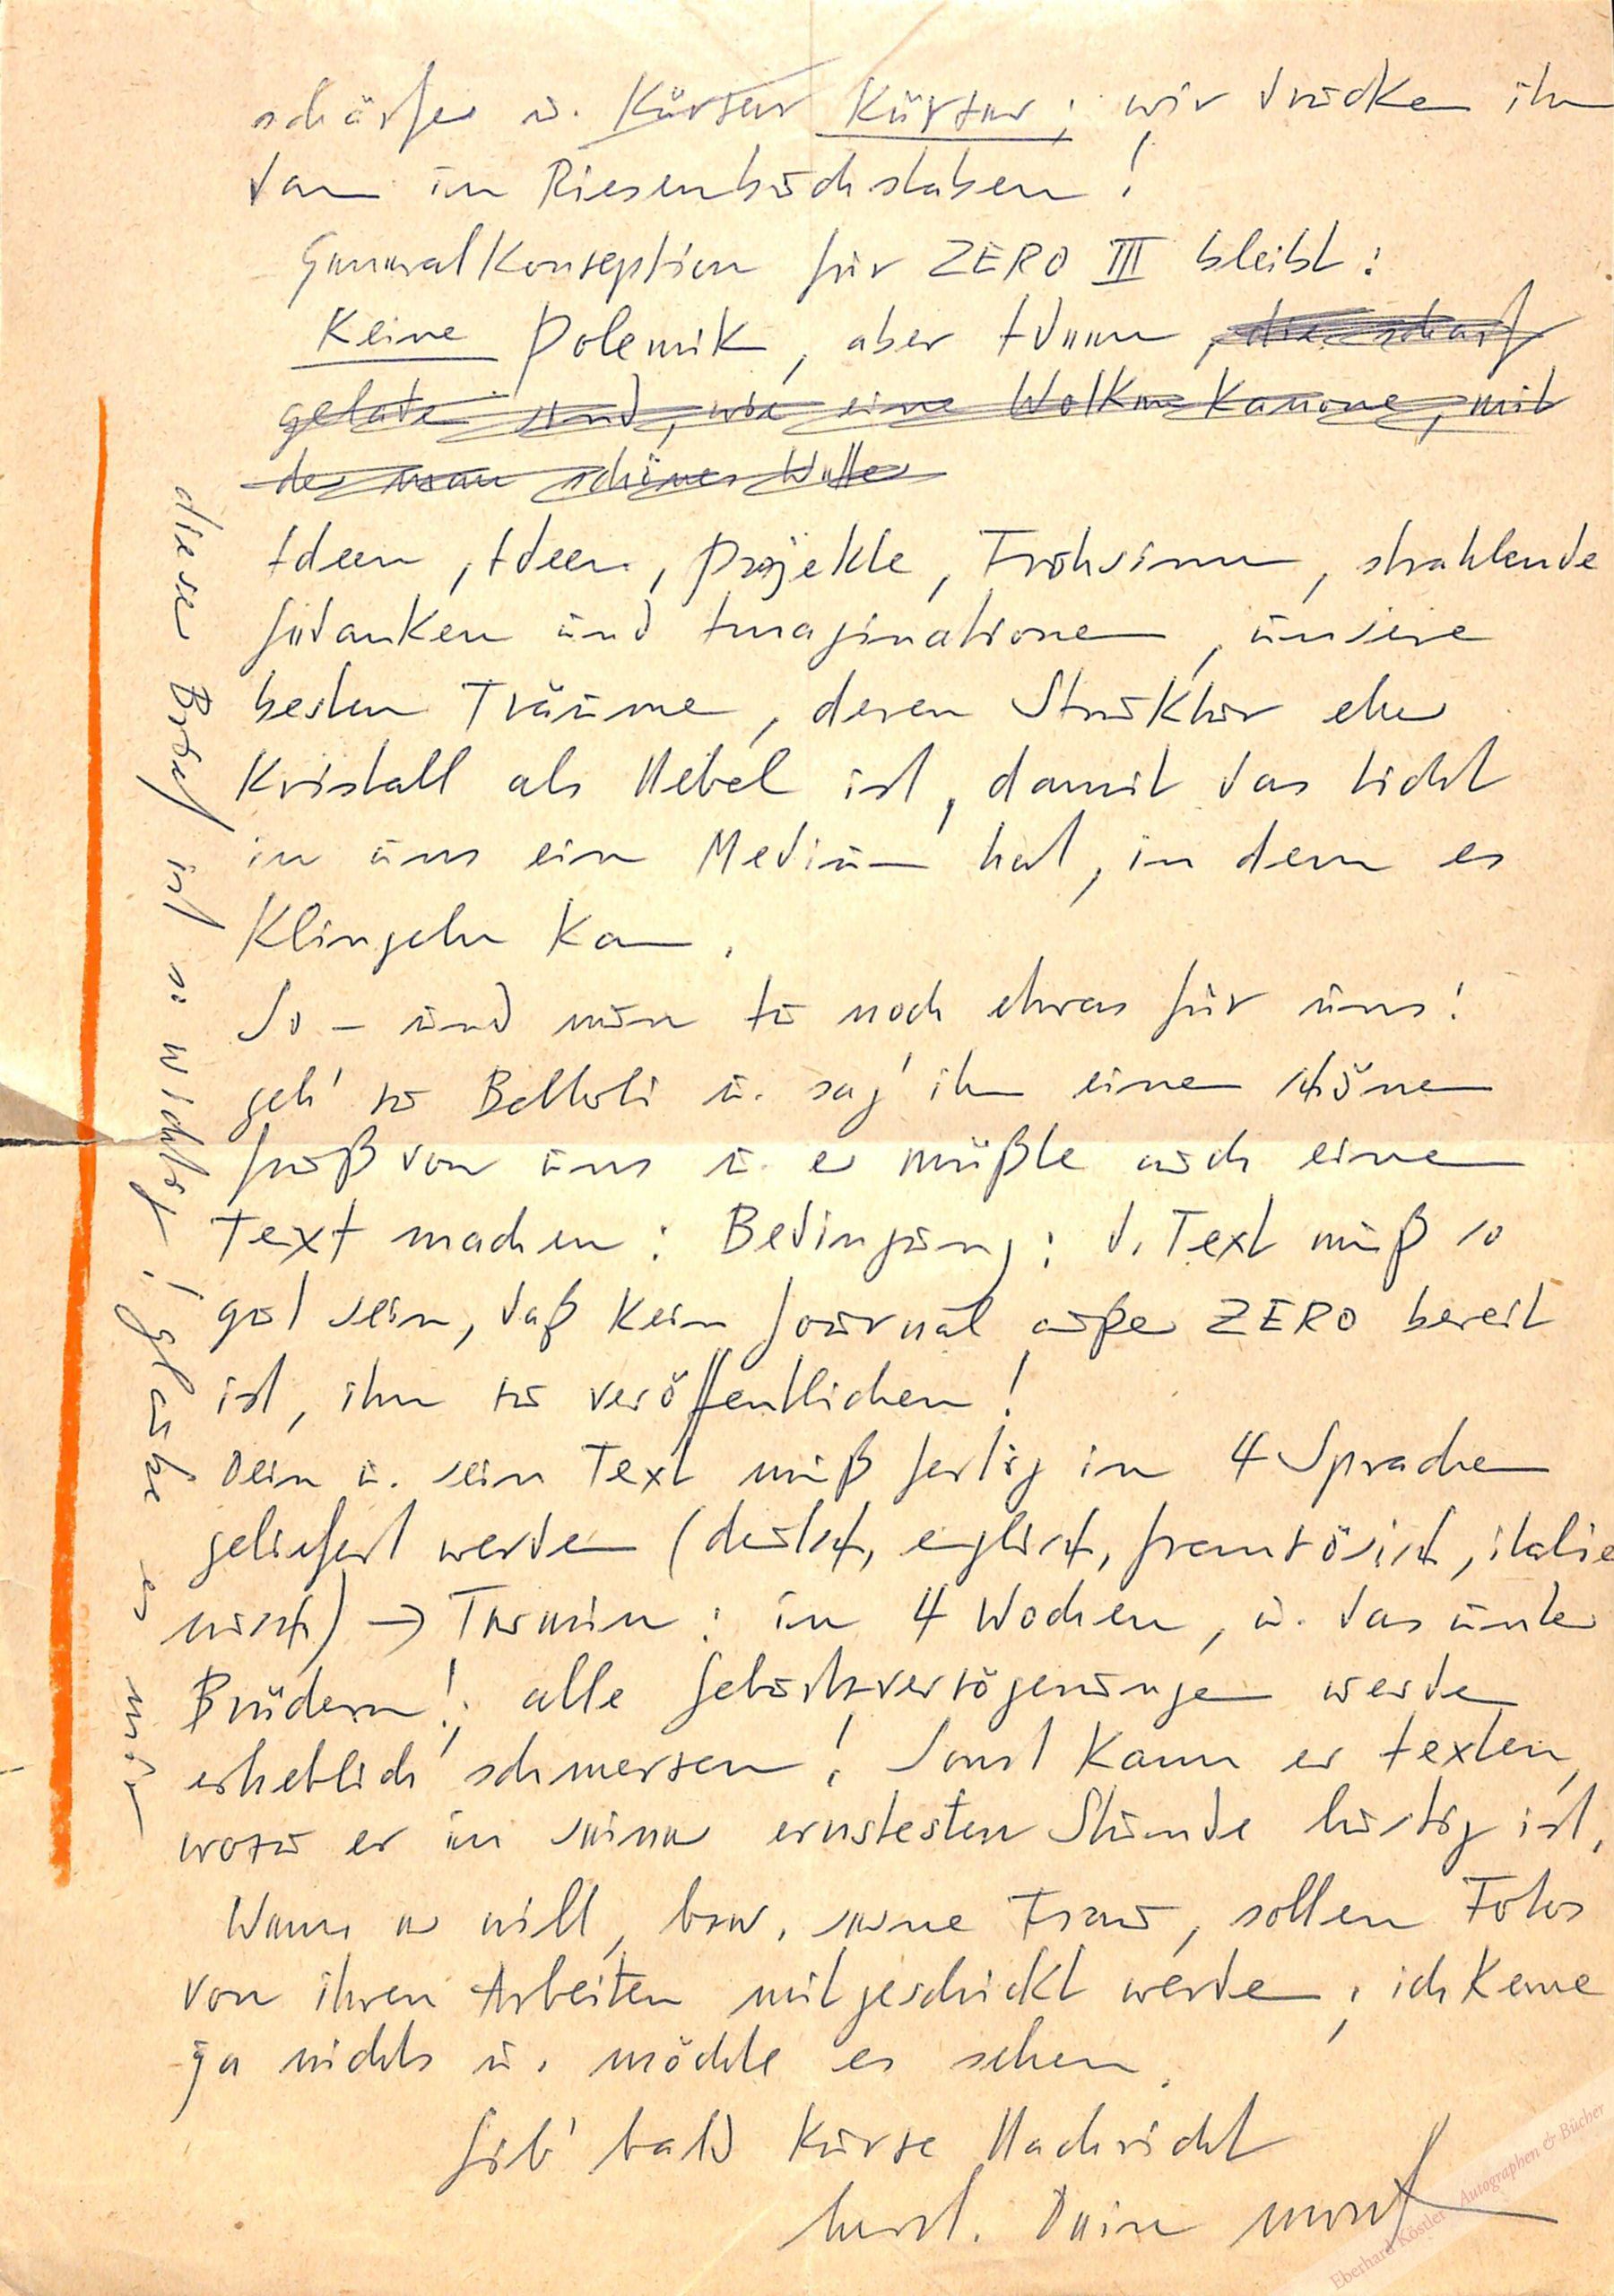 schärfer u. Kürzer Kürzer; wir drucken ihn
dann in Riesenbuchstaben!
Generalkonzeption für ZERO III bleibt:
Keine Polemik, aber Ideen, die scharf
geladen sind, wie eine Wolkenkanone, mit
der man schönes Wetter
Ideen, Ideen, Projekte, Frohsinn, strahlende
Gedanken und Imaginationen, unsere
besten Träume, deren Struktur eher
Kristall als Nebel ist, damit das Licht
in uns ein Medium hat, in dem es
Klingeln kann.
So – und nun tu noch etwas für uns:
geh' zu Belloli u. sag' ihm einen schönen
Gruß von uns u. er müßte auch einen
Text machen: Bedingung: d. Text muß so
gut sein, daß kein Journal außer ZERO bereit
ist, ihn zu veröffentlichen!
Dein u. sein Text muß fertig in 4 Sprachen
geliefert werden (deutsch, englisch, französisch, italie
nisch) → Termin: in 4 Wochen, u. das unter
Brüdern!; alle Geburtsverzögerungen werden
erheblich schmerzen! Sonst kann er texten,
wozu er in seiner ernstesten Stunde lustig ist.
Wenn er will, bzw. seine Frau, sollen Fotos
von ihren Arbeiten mitgeschickt werden, ich kenne
ja nichts u. möchte es sehen.
Gib' bald kurze Nachricht
herzl. Dein
dieser Brief ist u wichtig! glaube es mir
Eberhard Köstler Autographen & Bücher